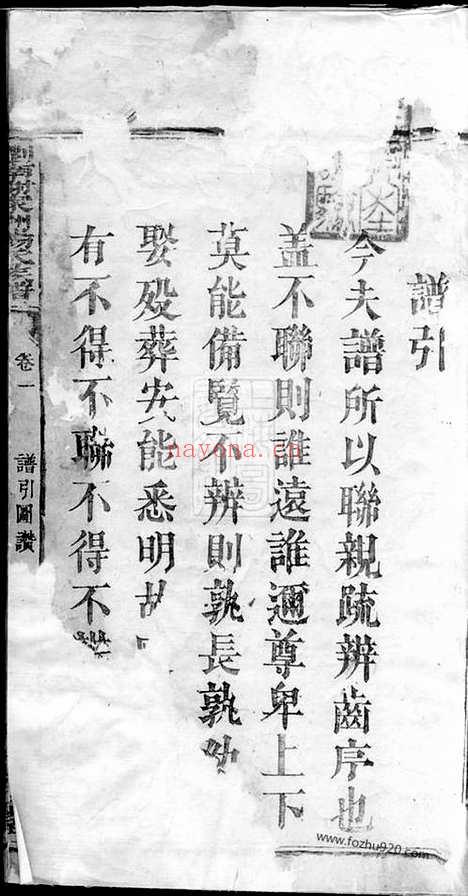 譜引
今夫譜所以聯親疏辨齒序也
蓋不聯則誰遠誰邇尊卑上下
莫能備覽不辨則孰長孰幼
娶殁葬安能悉明故
有不得不聯不得不
卷一
譜引圖讚
nayona.cn
www.fozhu920.com